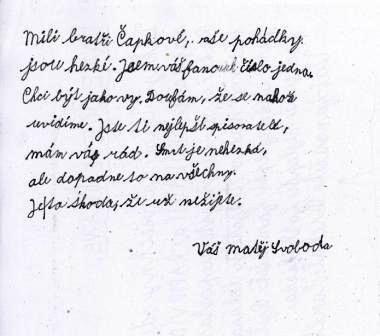 Milí bratři Čapkově, vaše pohádky
jsou hezké. Jsem váš fanoušek číslo jedna.
Chci být jako vy. Doufám, že se nahoře
uvidíme. Jste ti nejlepší spisovatelé,
mám vás rád. Smrt je nehezká,
ale dopadne to na všechny.
Je to škoda, že už nežijete.
Váš Matěj Svoboda